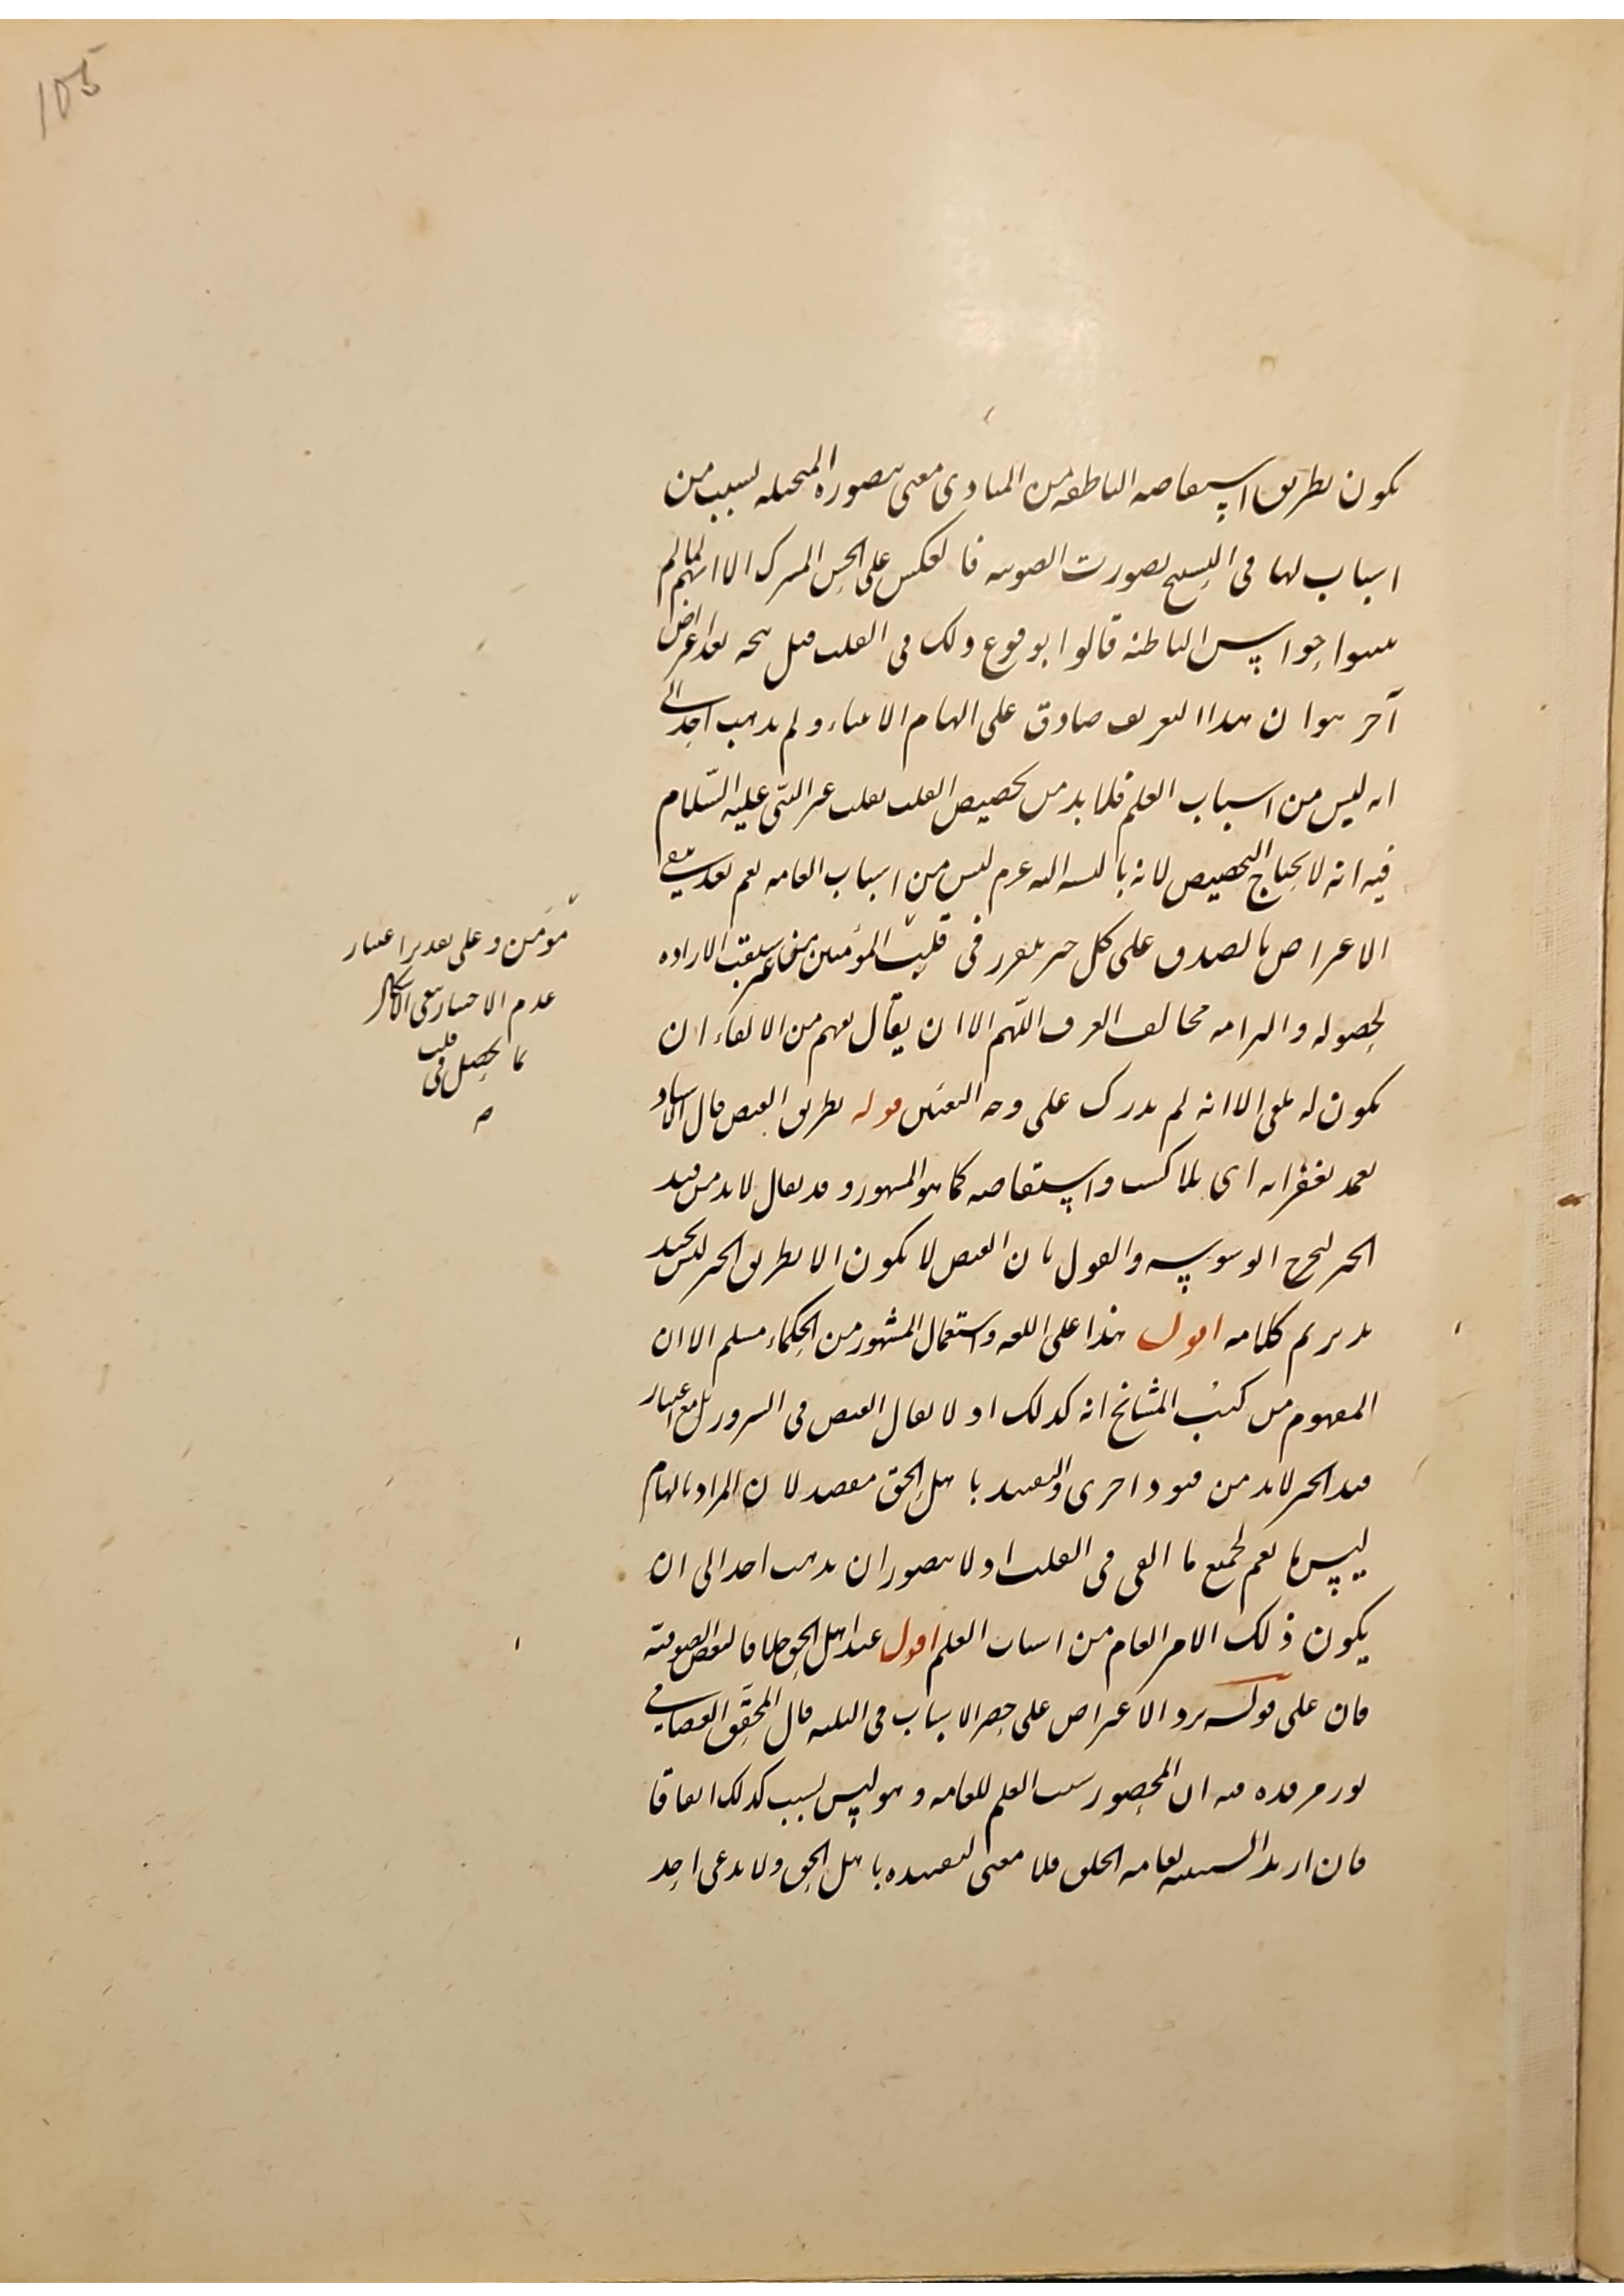 105
يكون بطريق استفاضه الناطقه من المبادى معنى يتصوره المتخيله بسبب من
اسباب لها فى اليسيح بصورت الصوتيه فانعكس على الحس المشترك الا انهم لما لم
يثبتوا حواس الباطنه قالوا بوقوع ذلك فى القلب قيل يتجه بعد اعتراض
آخر هو ان هذا التعريف صادق على الهام الانبياء ولم يذهب احد الى
انه ليس من اسباب العلم فلا بد من تخصيص القلب بقلب غير النبى عليه السّلام
فيه انه لا يحتاج التخصيص لانه بالنسبه الى غيرهم ليس من اسباب العامه نعم بعد يبقى
الاعتراض بالصدق على كل خبر يتقرر فى قلب المؤمنين من غير سبقت الاراده
لحصوله والتزامه مخالف العرف اللّهم الا ان يقال يفهم من الالقاء ان
يكون له ملقى الا انه لم يدرك على وجه التعيّن قوله بطريق الفيض قال الاستاد
تغمد بغفرانه اى بلا كسب واستفاضه كما هو المشهور وقد يقال لا بد من قيد
الخير ليخرج الوسوسه والقول بان الفيض لا يكون الا بطريق الخير ليس بجيد
تدبر تم كلامه اقول هذا على اللغه واستعمال المشهور من الحكماء مسلم الا ان
المفهوم من كتب المشائخ انه كذلك اذ لا يقال الفيض فى الشرور بل مع اعتبار
قيد الخير لا بد من قيود اخرى والتقييد باهل الحق مقصد لان المراد بالهام
ليس ما يعم لجميع ما القى فى القلب اذ لا يتصور ان يذهب احد الى ان
يكون ذلك الامر العام من اسباب العلم اقول عند اهل الحق خلافا لبعض الصوفيّه
فان على قولهم يرد الاعتراض على حصر الاسباب فى الثلثه قال المحقق العصامى
نور مرقده فيه ان المحصور سبب العلم للعامه وهو ليس بسبب كذلك اتفاقا
فان اريد السببيه لعامه الخلق فلا معنى لتقييده باهل الحق ولا يدعى احد
مؤمن وعلى تقدير اعتبار
عدم الاختيار يبقى الاشكال
بما يحصل فى قلب